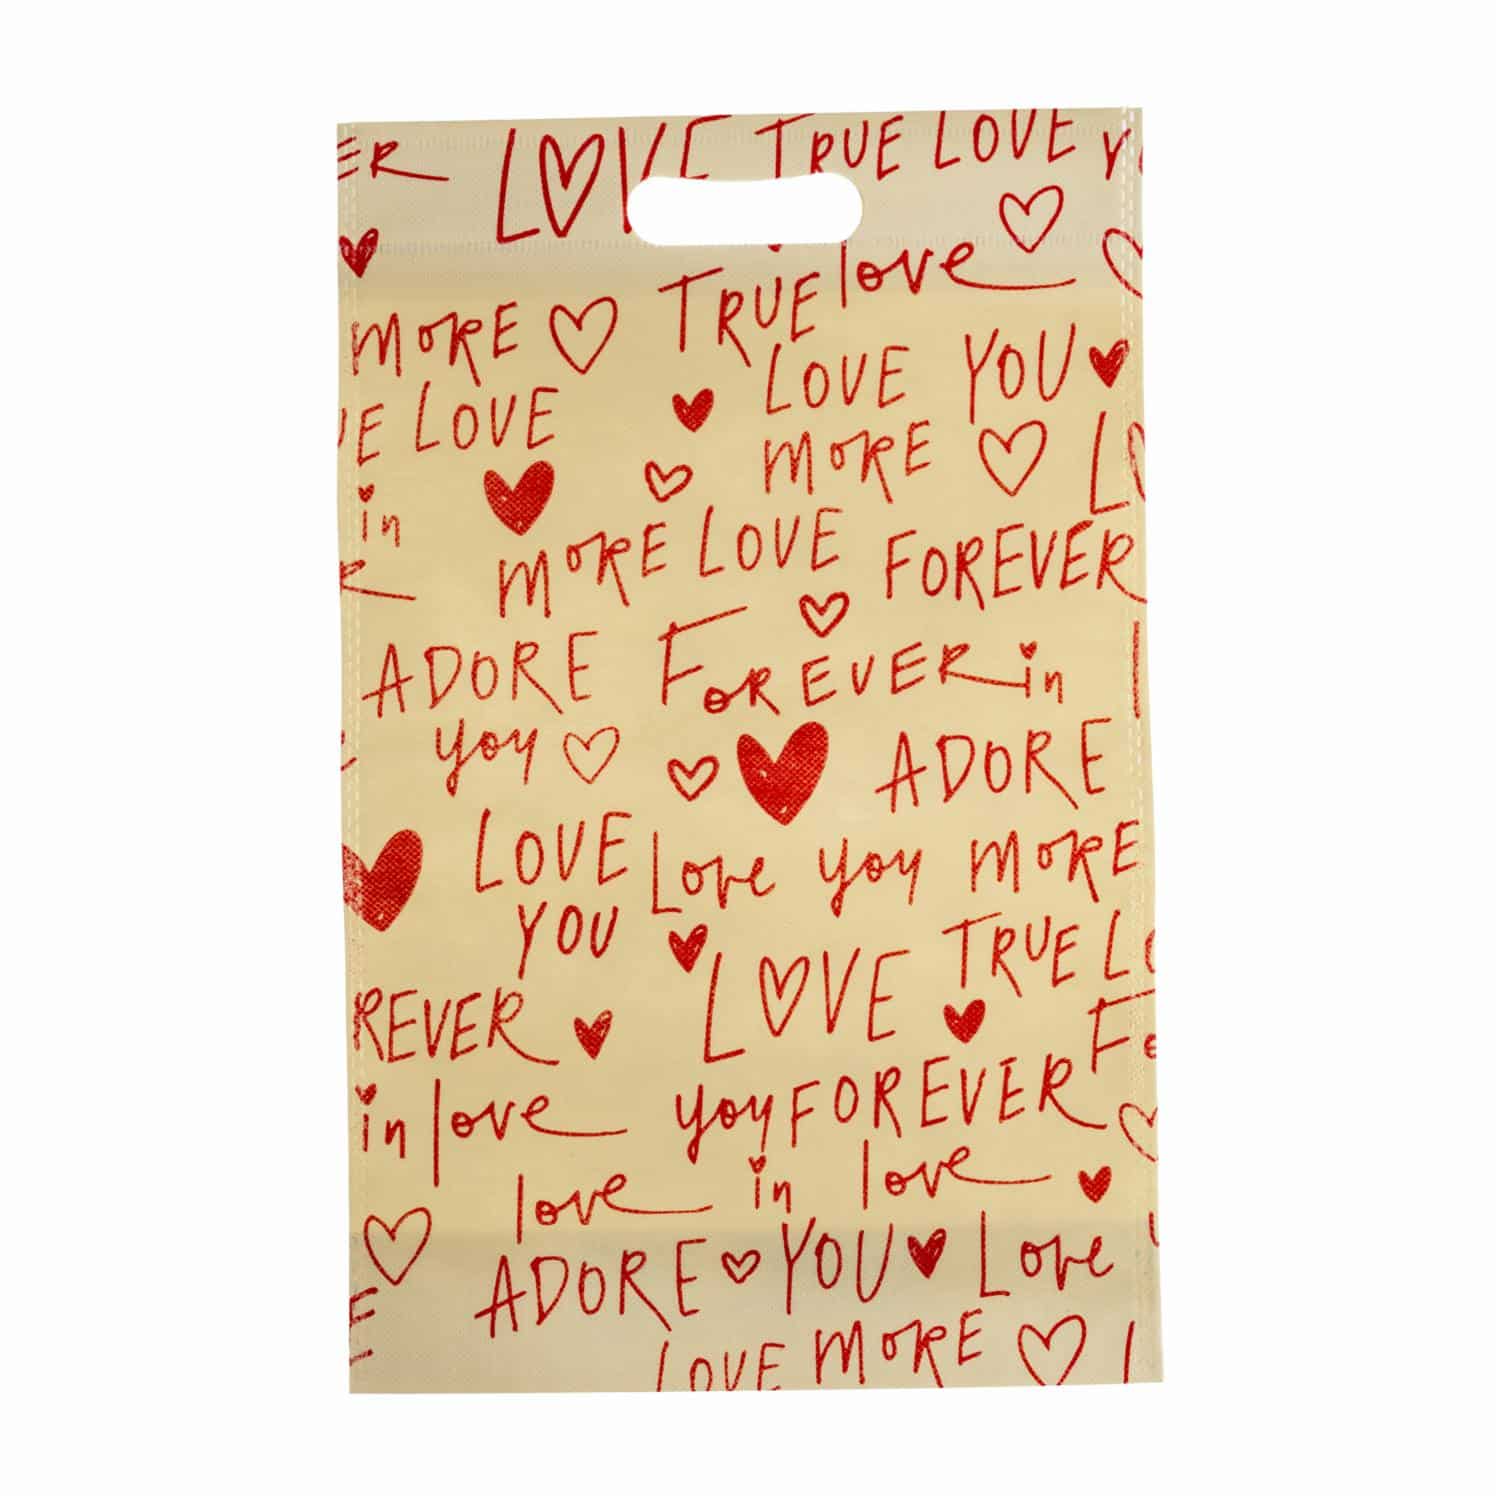 ER LOVE TRUE LOVE
MORE TRUE love
LOVE YOU
E LOVE
MORE L
in
MORE LOVE FOREVER
R
ADORE FOREVER in
you ADORE
LOVE Love you MORE
YOU TRUE LO
LOVE
REVER Fo
in love you FOREVER
love in love
ADORE YOU Love
E
LOVE MORE